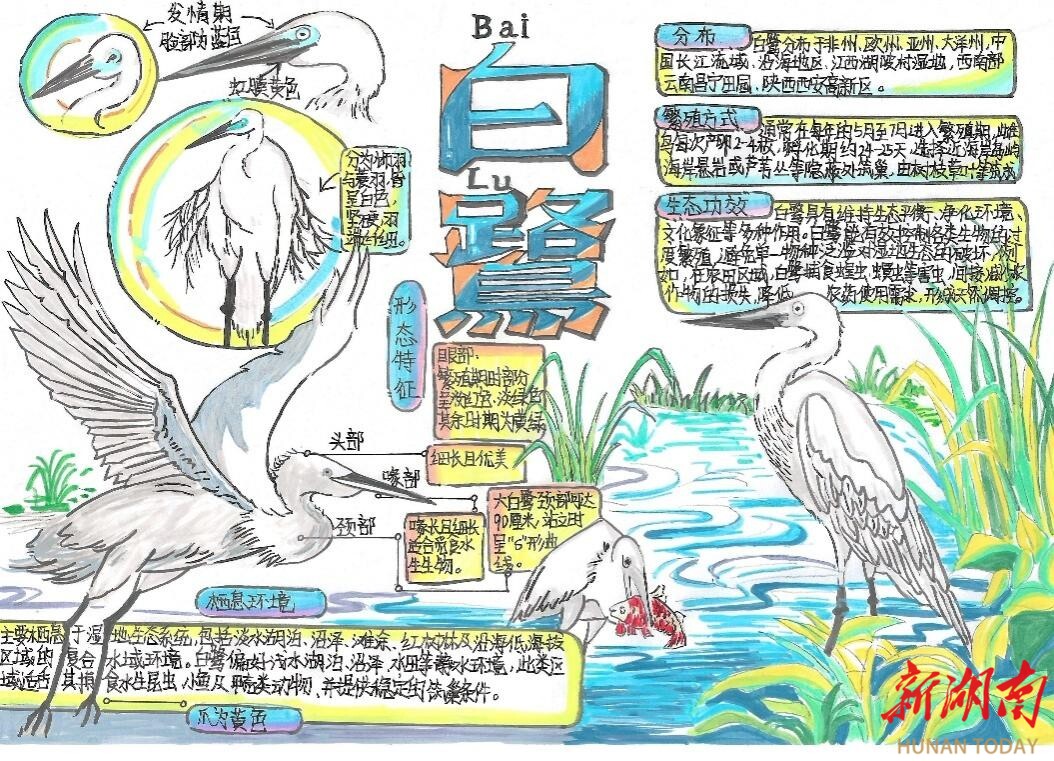 发情期
脸部为蓝色
虹膜黄色
Bai
白
Lu
鹭
分布
白鹭分布于非州、欧州、亚州、大洋州,中
国长江流域、沿海地区、江西湖陂村湿地,西南部
云南昌宁田园、陕西西安高新区。
繁殖方式
通常在每年的5月至7月进入繁殖期,雌
鸟每次产卵2-4枚,孵化期约24-25天,选择近海岸岛屿
海岸悬岩或芦苇丛等隐蔽处筑巢,由树枝草叶等筑成
生态功效
白鹭具有维持生态平衡、净化环境、
文化象征等多种作用。白鹭能有效控制各类生物的过
度繁殖,避免单一物种泛滥对湿地生态的破坏,例
如,在农田区域,白鹭捕食蝗虫、螟虫等害虫,间接减少农
作物的损失,降低 农药使用需求,形成天然调控。
分为饰羽
与蓑羽,皆
呈白色,
形态特征
眼部:
繁殖期时部分
其余时期为黄绿
头部
细长且优美
喙部
喙长且细长
适合承食水
生生物。
颈部
大白鹭颈部可达
90厘米,站立时
呈“S”形曲
线。
栖息环境
主要栖息于湿地生态系统,包括淡水湖泊、沼泽、滩涂、红树林及沿海低海拔
区域的复合水域环境。白鹭偏好浅水湖泊、沼泽、水田等静水环境,此类区
域适合其捕食水生昆虫,小鱼及甲壳类动物,并提供稳定的筑巢条件。
爪为黄色
新湖南
HUNAN TODAY